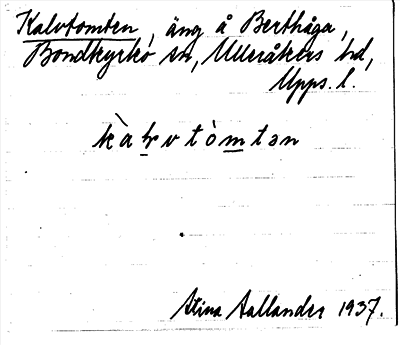 Kalvtomten, äng å Berthåga,
Bondkyrko sn, Ulleråkers hd,
Upps. l.
kàlvtòmtən
Stina Aallander 1937.